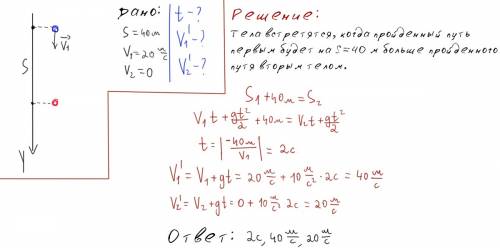 Дано:
S = 40м
V₁ = 20 м/с
V₂ = 0
t - ?
V₁' - ?
V₂' - ?
V₁
S
Y
Решение:
Тела встретятся, когда пройденный путь
первым будет на S=40 м больше пройденного
пути вторым телом.
S₁ + 40м = S₂
V₁t + gt²/2 + 40м = V₂t + gt²/2
t = |-40м/V₁| = 2с
V₁' = V₁ + gt = 20 м/с + 10 м/с² · 2с = 40 м/с
V₂' = V₂ + gt = 0 + 10 м/с² 2с = 20 м/с
Ответ: 2с, 40 м/с, 20 м/с